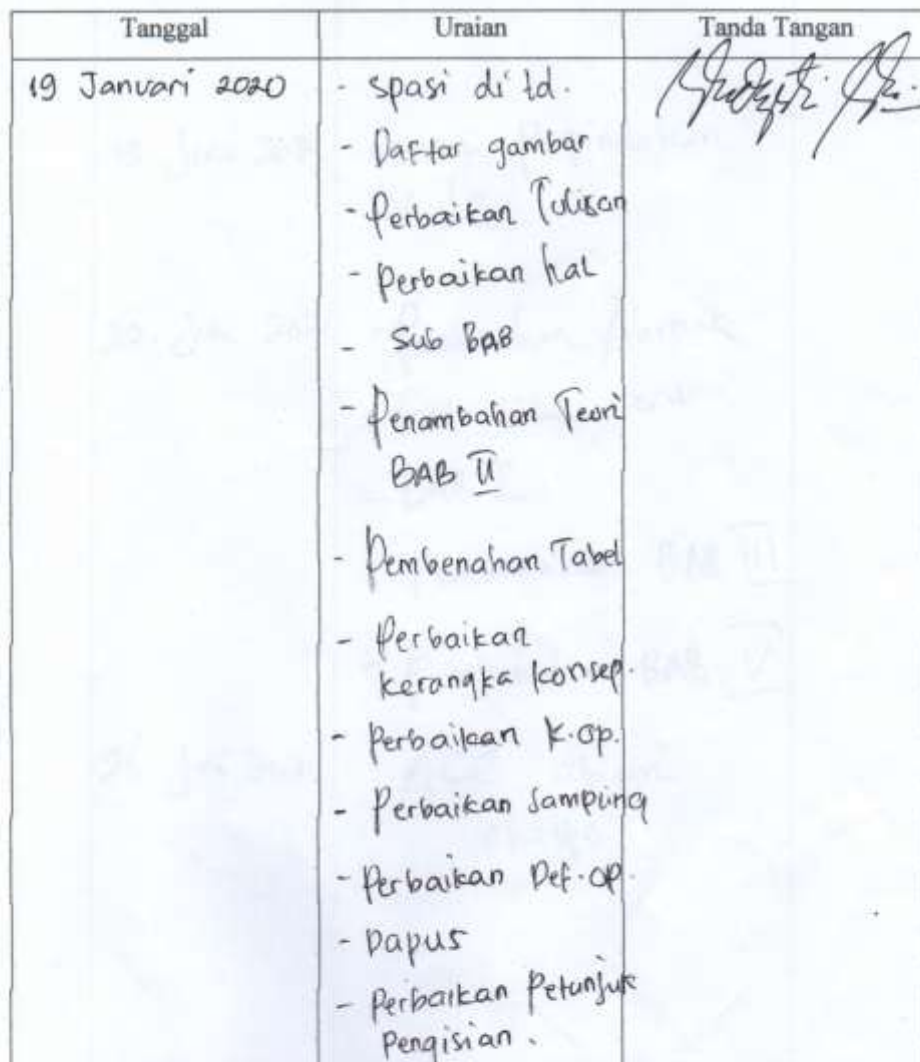 Tanggal Uraian Tanda Tangan
19 Januari 2020 - spasi di td.
- Daftar gambar
- Perbaikan Tulisan
- Perbaikan hal
- Sub BAB
- Penambahan Teori
BAB II
- Pembenahan Tabel
- Perbaikan
kerangka konsep.
- Perbaikan k.op.
- Perbaikan Sampling
- Perbaikan Def.op.
- Dapus
- Perbaikan Petunjuk
Pengisian.